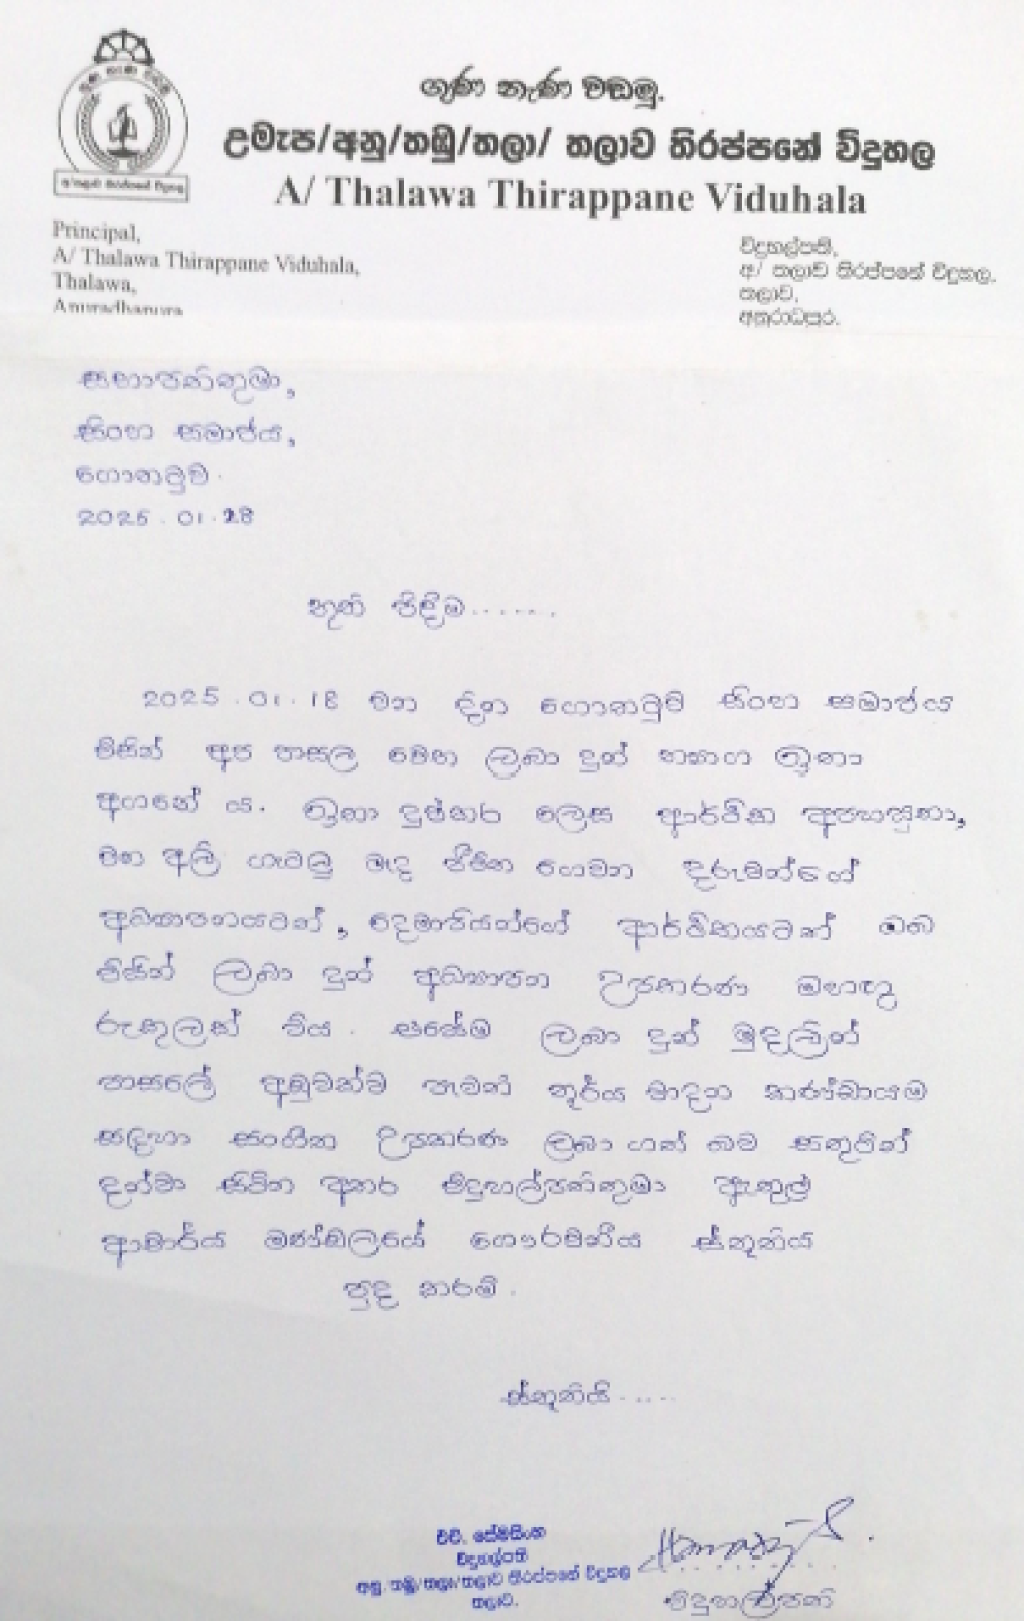 ගුණ නැණ වඩමු.
උමැප/අනු/තඹු/තලා/ තලාව තිරප්පනේ විදුහල
A/ Thalawa Thirappane Viduhala
Principal,
A/ Thalawa Thirappane Viduhala,
Thalawa,
Anuradhapura
විදුහල්පති,
අ/ තලාව තිරප්පනේ විදුහල,
තලාව,
අනුරාධපුර.
සභාපතිතුමා,
සිංහ සමාජය,
ගොනටුව.
2025.01.28
තුති පිදීම.......
2025.01.18 වන දින ගොනටුව සිංහ සමාජය
විසින් අප පාසල වෙත ලබා දුන් ත්‍යාග ඉතා
අගනේ ය. ඉතා දුෂ්කර ලෙස ආර්ථික අපහසුතා,
වන අලි ගැටලු මැද ජීවිත ගෙවන දරුවන්ගේ
අධ්‍යාපනයටත්, දෙමාපියන්ගේ ආර්ථිකයටත් ඔබ
විසින් ලබා දුන් අධ්‍යාපන උපකරණ මහඟු
රුකුලක් විය. එසේම ලබා දුන් මුදලින්
පාසලේ අඩුවක්ව පැවති තූර්ය වාදන කණ්ඩායම
සඳහා සංගීත උපකරණ ලබා ගත් බව සතුටින්
දන්වා සිටින අතර විදුහල්පතිතුමා ඇතුළු
ආචාර්ය මණ්ඩලයේ ගෞරවනීය ස්තූතිය
පුද කරමි.
ස්තූතියි.....
එච්. සේමසිංහ
විදුහල්පති
අනු/තඹු/තලා/තලාව තිරප්පනේ විදුහල
තලාව.
විදුහල්පති